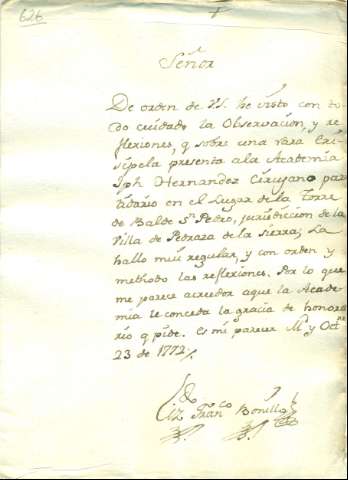 626
+
Señor
De orden de VS. he visto con to-
do cuidado la Observacion, y re-
flexiones, q sobre una rara Eri-
sipela presenta a la Academia
Jph Hernandez Cirujano par-
tidario en el Lugar de la Torre
de Balde Sn Pedro, jurisdiccion de la
Villa de Pedraza de la sierra; La
hallo mui regular, y con orden, y
methodo las reflexiones. Por lo que
me parece acreedor aque la Acade-
mia le conceda la gracia de honora-
rio q pide. Es mi parecer My Octre
23 de 1772/.
Franco Bonillo